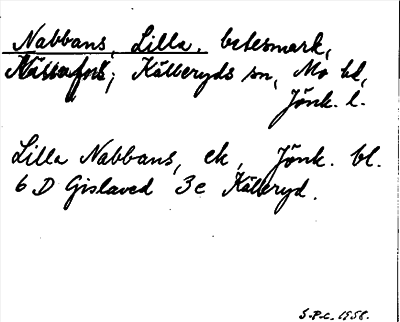 Nabbans, Lilla, betesmark,
Nässafors; Kålleryds sn, Mo hd,
Jönk. l.
Lilla Nabbans, ek, Jönk. bl.
6 D Gislaved 3c Kålleryd.
S.P.c. 1958.